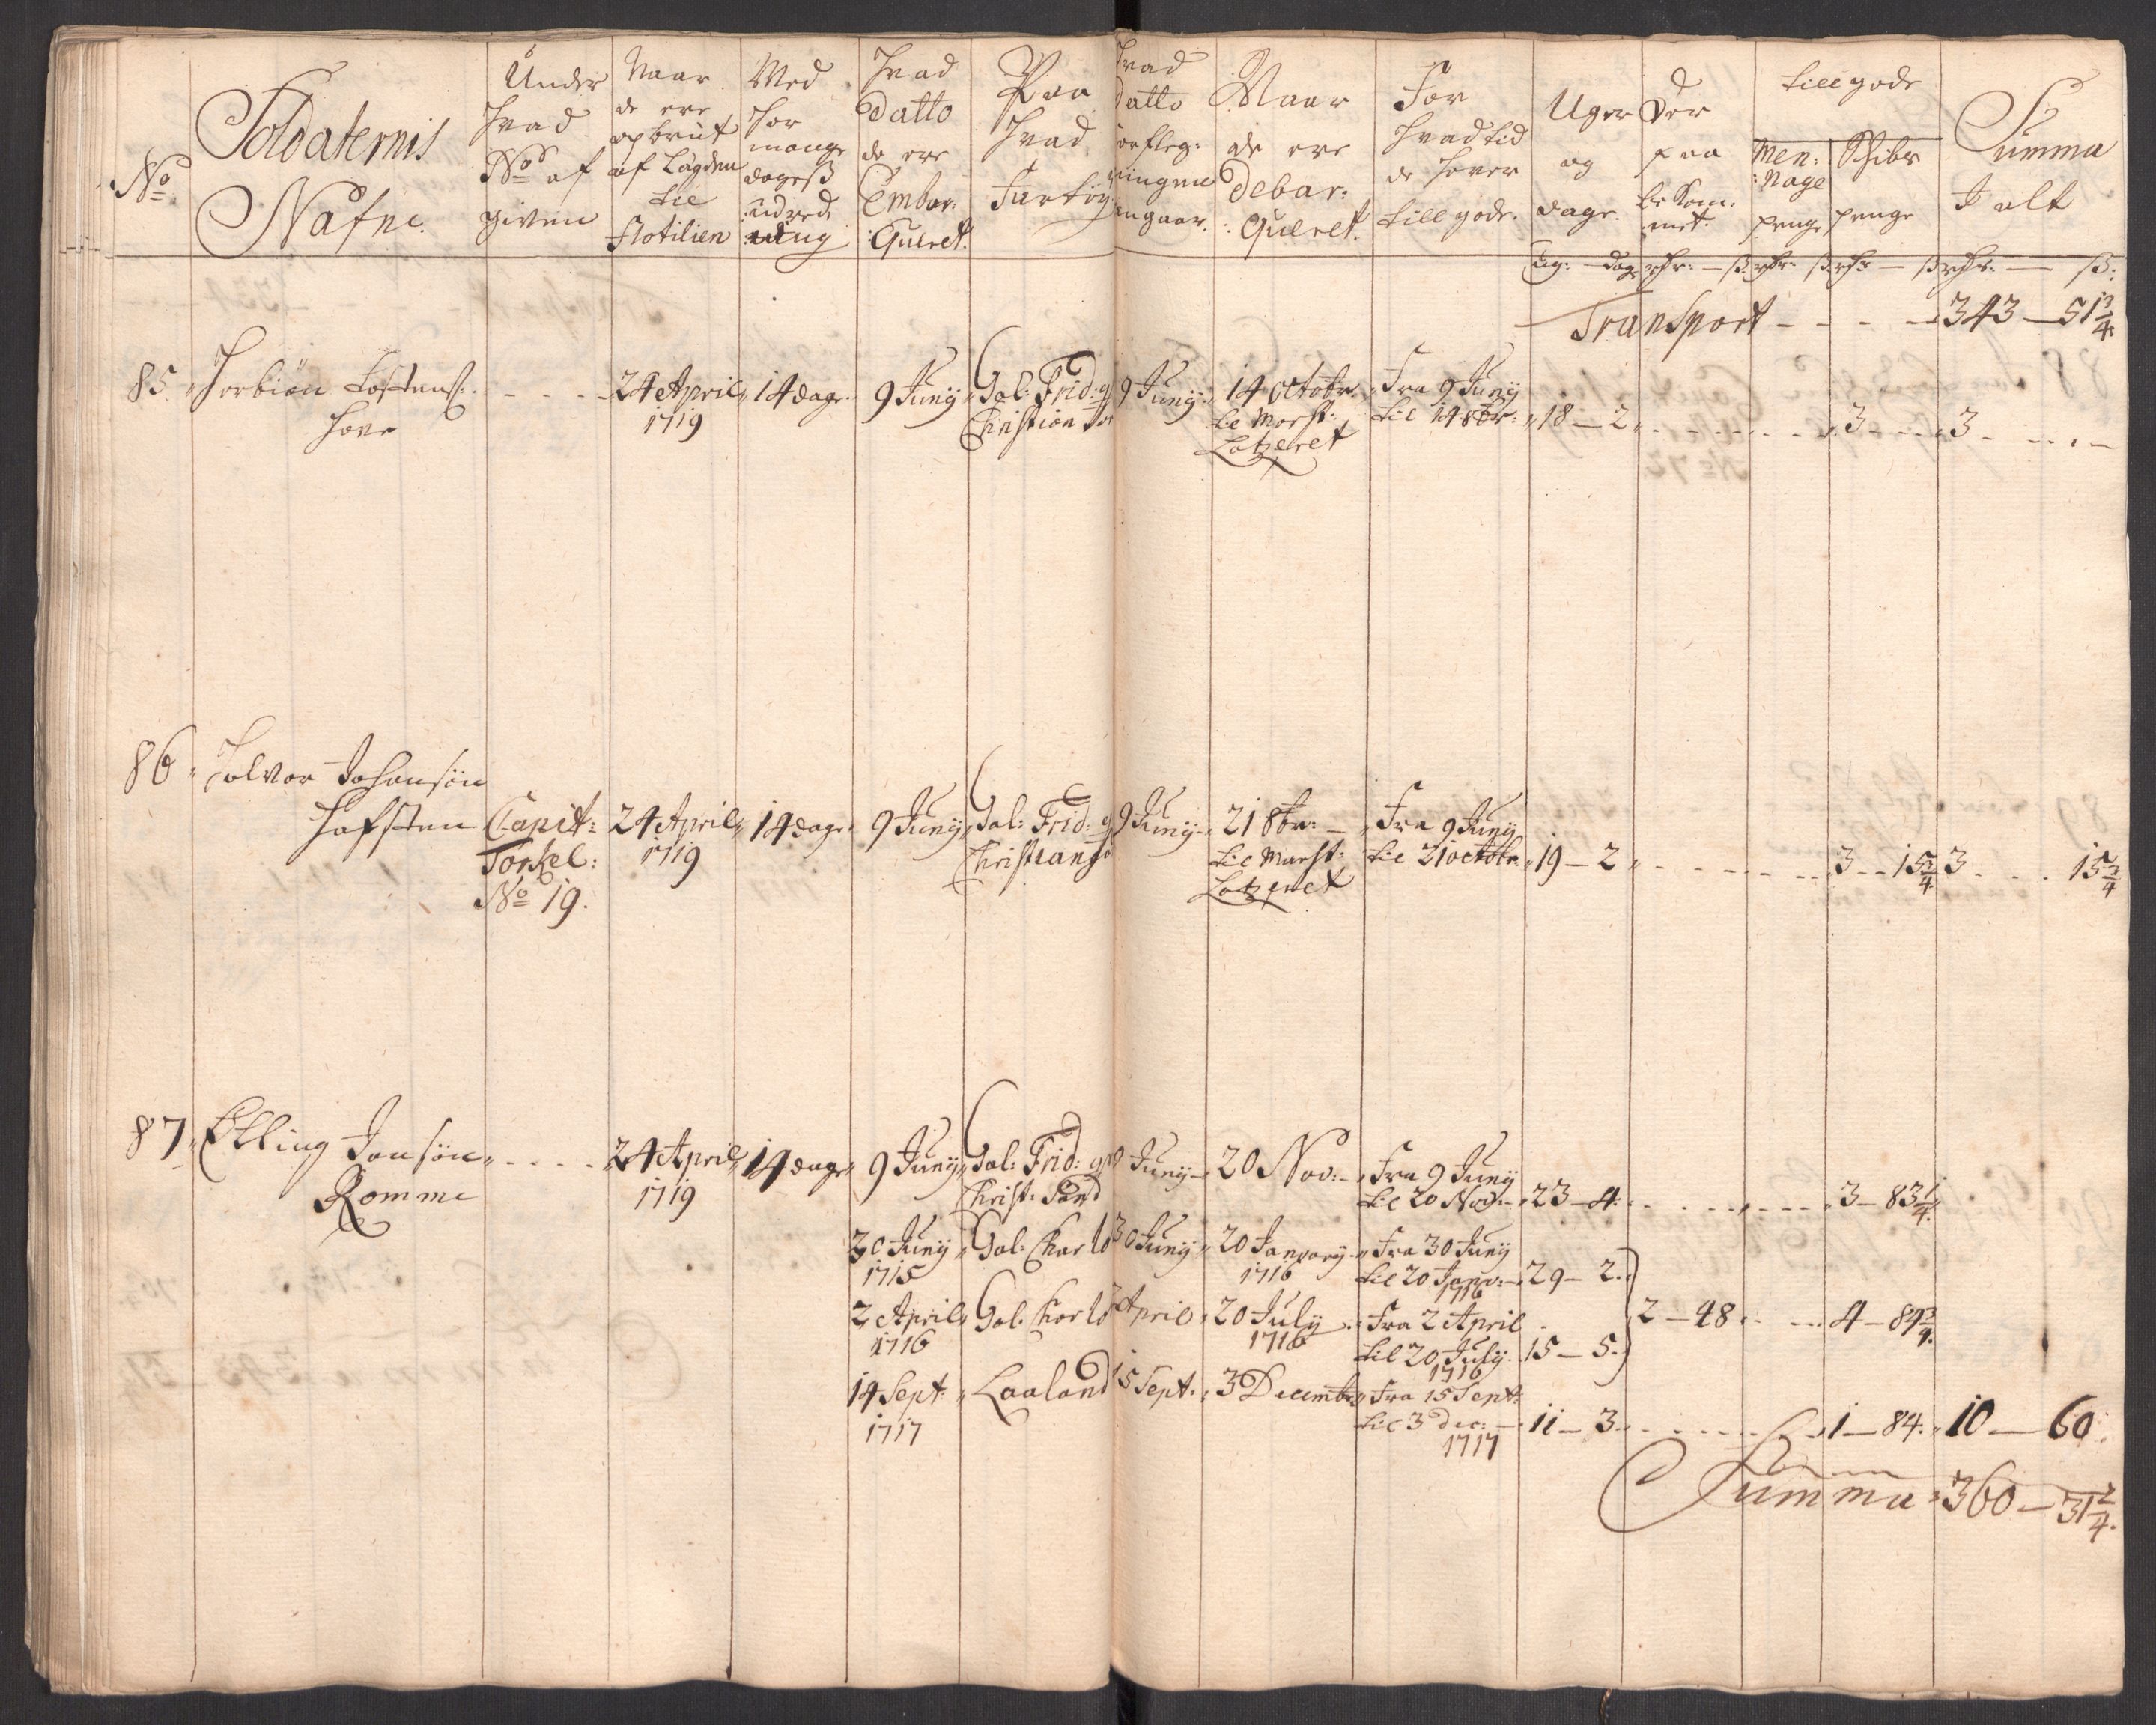 No
Soldaternis
Nafne.
Under
hvad
No af
given
Naar
de ere
opbrüt
af Lægden
til
flotilien
Med
hor
mange
dageß
üdred
ning
Hvad
Datto
de ere
Embar:
:Queret.
Paa
hvad
Fartöy
hvad
Datto
orfleg:
ningen
angaar.
Naar
de ere
Debar:
:Queret.
For
hvad tid
de haver
till gode.
Uger
og
dage.
Der
paa
bekom:
met.
till gode
Men:
:Nage
penge
Schibs
penge
Summa
I alt
Ug: — dag rdr: — ß rdr: ß rdr — ß rdr: — ß:
Transport - - - - 343 — 51 3/4
85. Torbiön Tostens:
Hove
24 April
1719
14 dage.
9 Junÿ
Gal: Frid: g
Christian
9 Junÿ
14 Octobr.
til Marst:
Latzeret
Fra 9 Junÿ
til 14 8br:
18 — 2
3
3
86. Halvor Johansön
Hafsten
Capit:
Torkel:
No 19.
24 April
1719
14 dage
9 Junÿ
Gal: Frid: g
Christians
9 Junÿ
21 8br:
til Marst:
Latzeret
Fra 9 Junÿ
til 21 octobr.
19 — 2
3 — 15 3/4
3 . . . 15 3/4
87. Elling Jonsön
Romme
24 April
1719
14 dage
9 Junÿ
Gal: Frid: g
Christ: Sand
9 Junÿ
20 Nov:
Fra 9 Junÿ
til 20 Nov:
23 — 4:
3 — 83 1/4
30 Junÿ
1715
Gal: Charlo
30 Junÿ
20 Janvarÿ
1716
Fra 30 Junÿ
til 20 Janv:
1716
29 — 2.
2 April
1716
Gal: Charlo
2 April
20 Julÿ
1716
Fra 2 April
til 20 Julÿ.
1716
15 — 5.
2 — 48
4 — 84 3/4.
14 Sept:
1717
Laaland
15 Sept:
3 Decembr
Fra 15 Sept:
til 3 dec:
1717
11 — 3
1 — 84.
10 — 60.
Summa 360 — 31 2/4.